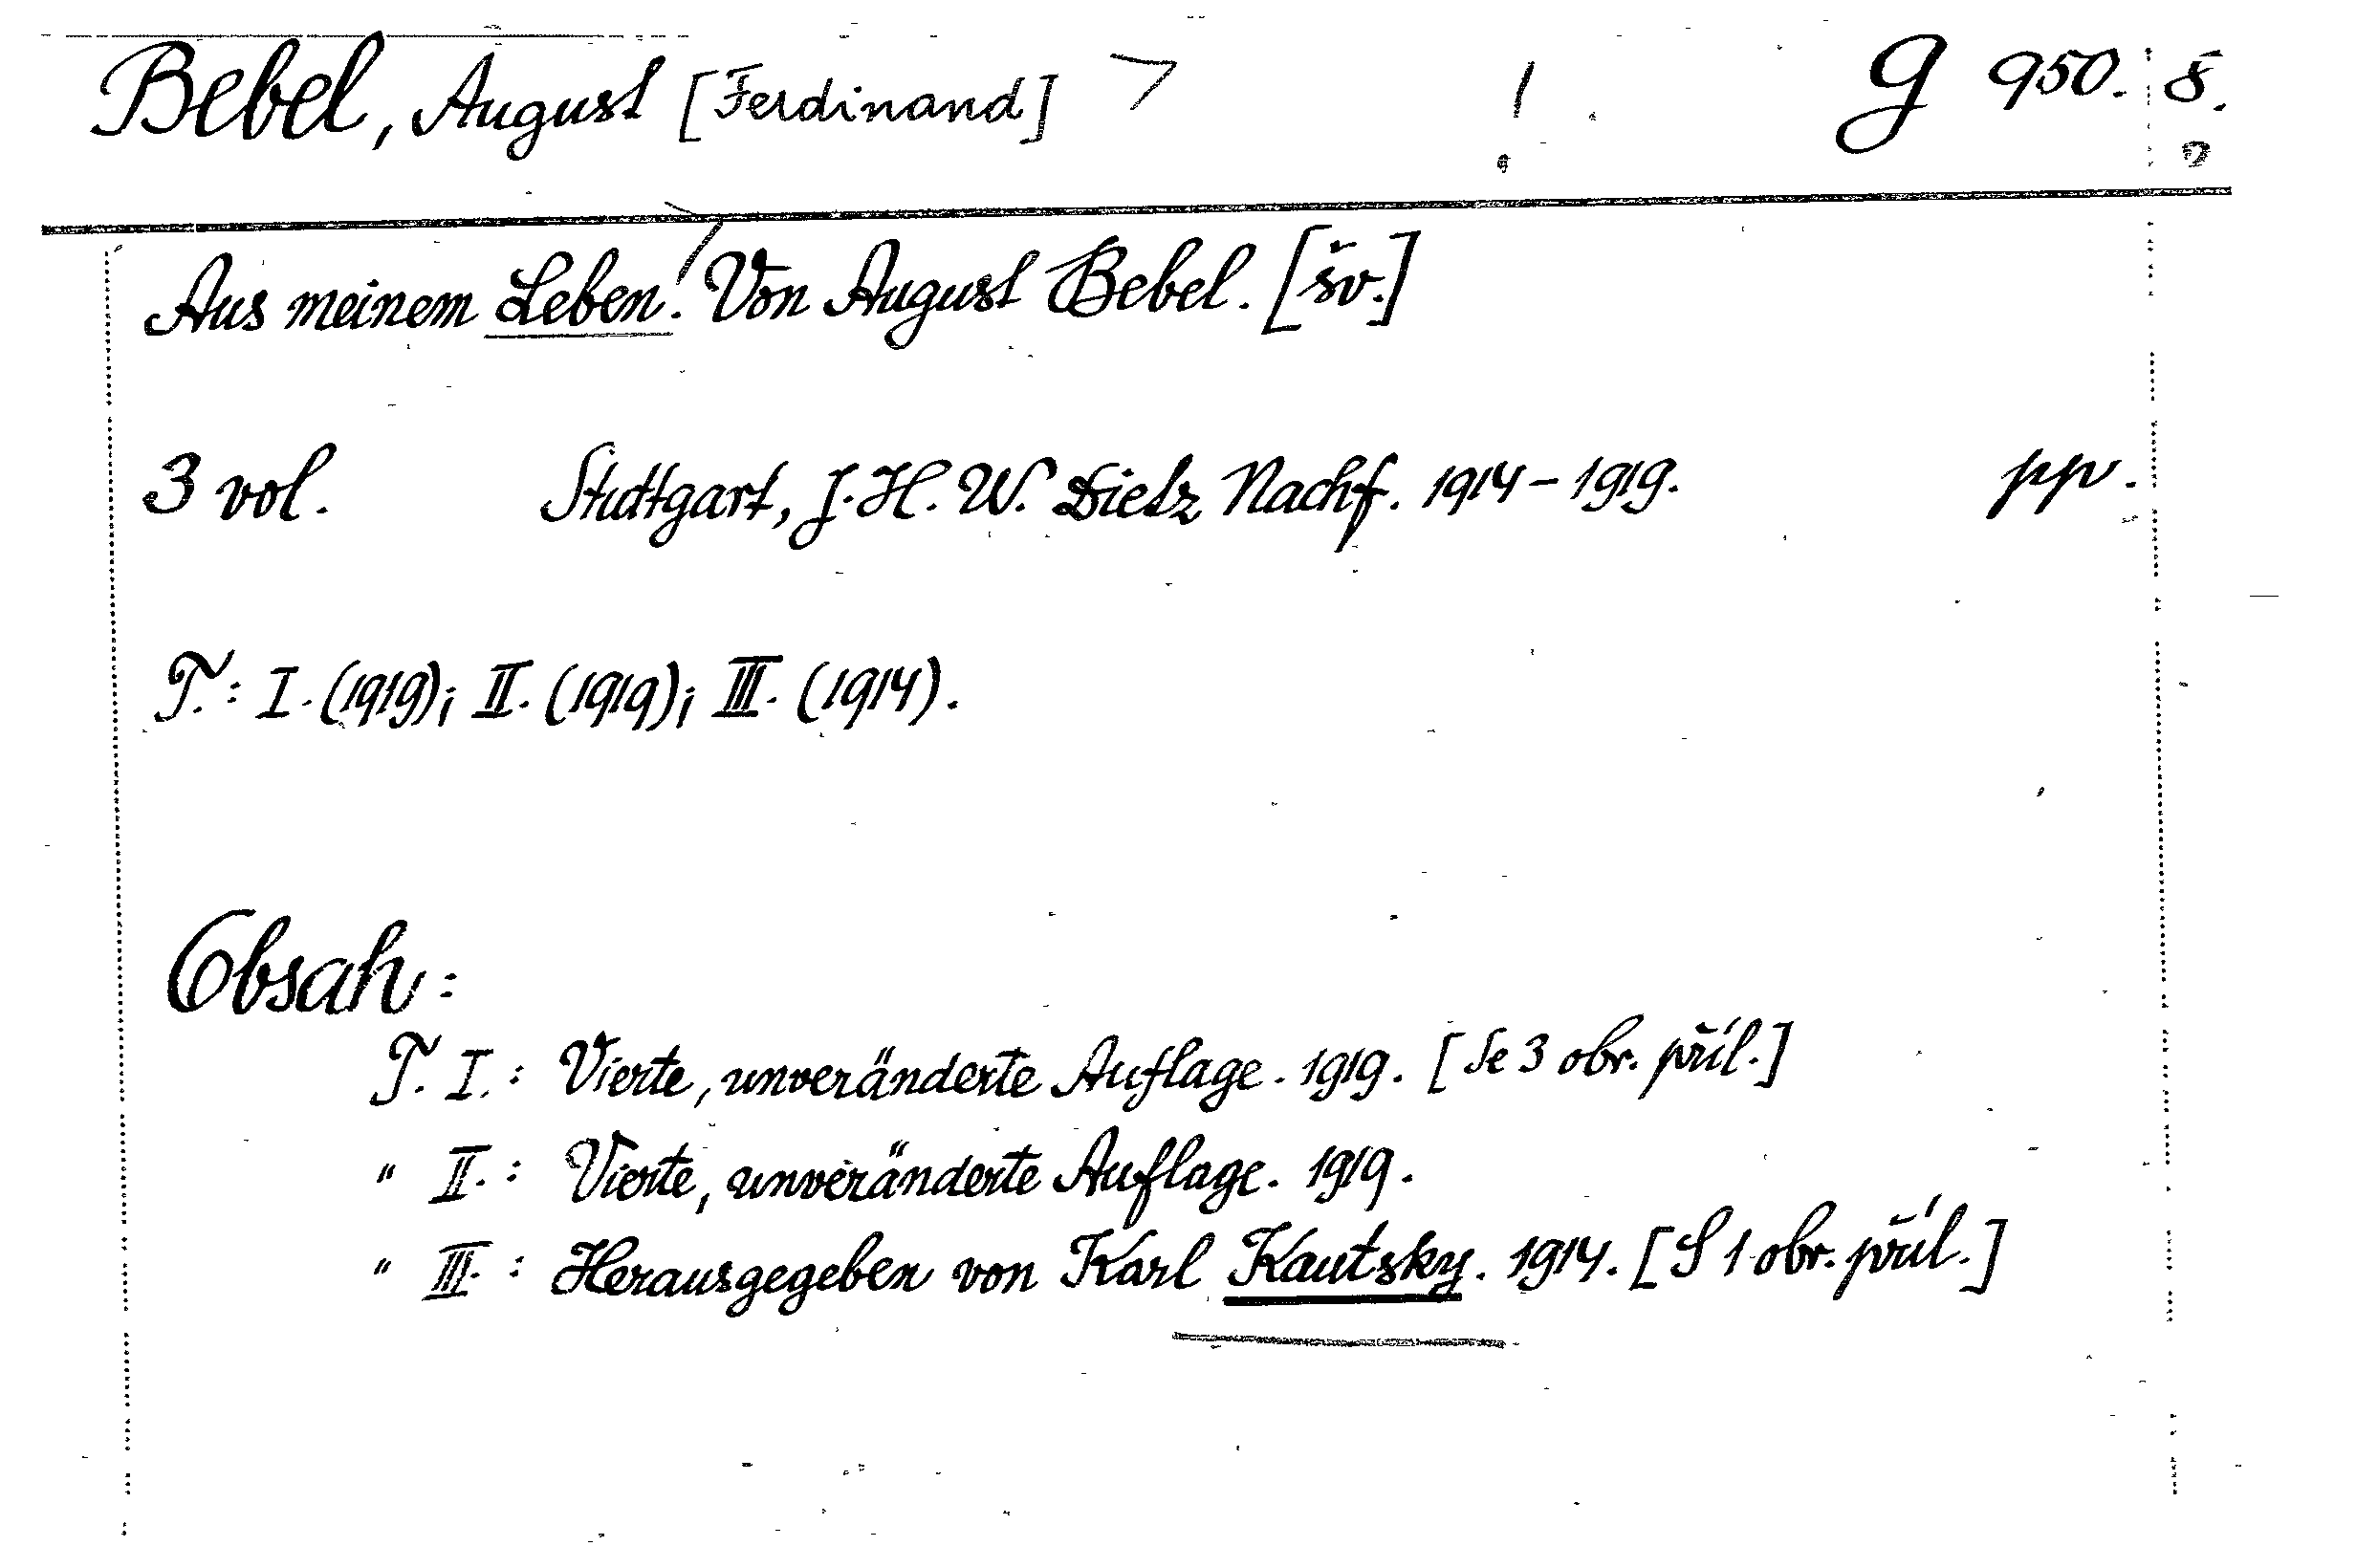 Bebel, August [Ferdinand] ! g 950. 8.
Aus meinem Leben. Von August Bebel. [šv.]
3 vol. Stuttgart, J. H. W. Dietz Nachf. 1914-1919. pp.
T.: I. (1919); II. (1919); III. (1914).
Obsah:
T. I.: Vierte, unveränderte Auflage. 1919. [Se 3 obr. příl.]
" II.: Vierte, unveränderte Auflage. 1919.
" III.: Herausgegeben von Karl Kautsky. 1914. [S 1 obr. příl.]